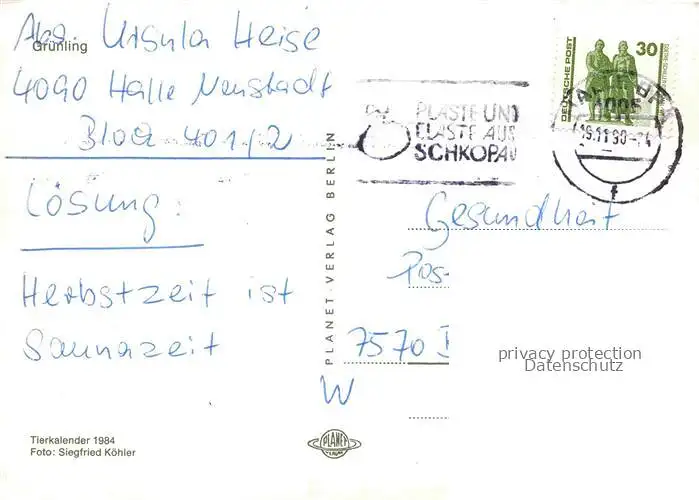 Grünling
Abs. Ursula Heise
4090 Halle Neustadt
Block 401/2
Lösung:
Herbstzeit ist
Saunazeit
Tierkalender 1984
Foto: Siegfried Köhler
PLANET-VERLAG BERLIN
PLANET
PLASTE UND
ELASTE AUS
SCHKOPAU
DEUTSCHE POST
30
Gesundheit
Pos-
7570
W
privacy protection
Datenschutz